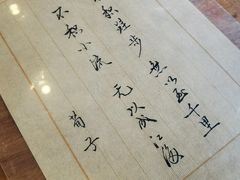 积跬步 無以至千里
不积小流 无以成江海
荀子